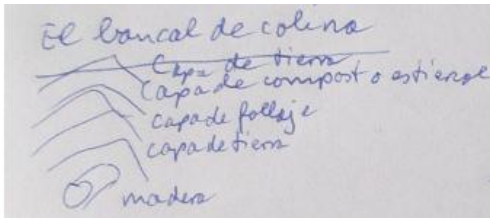 El bancal de colina
Capa de tierra
Capa de compost o estiercol
capa de follaje
capa de tierra
madera